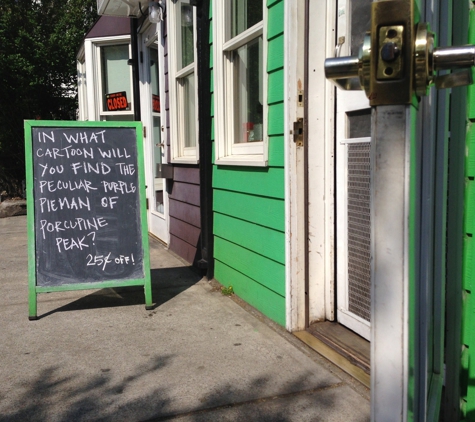 CLOSED
IN WHAT
CARTOON WILL
YOU FIND THE
PECULIAR PURPLE
PIEMAN OF
PORCUPINE
PEAK?
25¢ OFF!